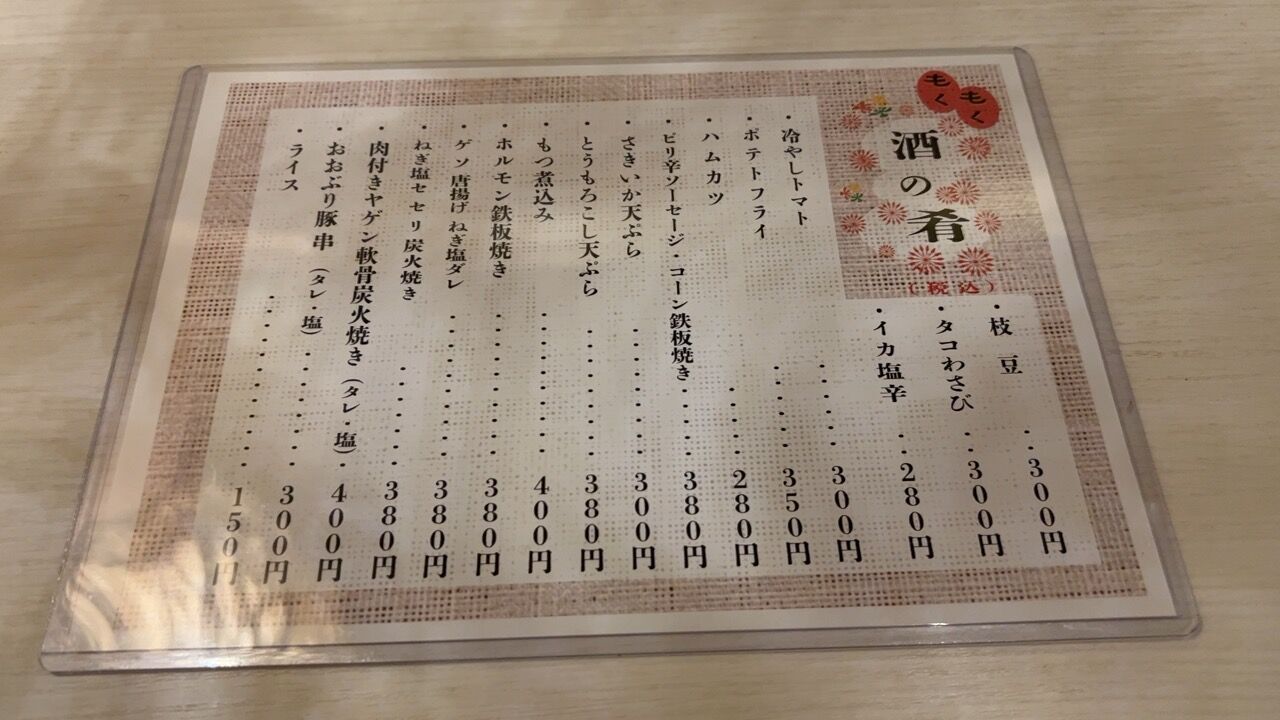 もくもく
酒の肴
(税込)
・枝豆‥300円
・タコわさび‥300円
・イカ塩辛‥280円
・冷やしトマト・・・・・300円
・ポテトフライ・・・・・350円
・ハムカツ・・・・280円
・ピリ辛ソーセージ・コーン鉄板焼き・・・・380円
・さきいか天ぷら・・・・・・・300円
・とうもろこし天ぷら・・・・・・・380円
・もつ煮込み・・・・・・・・400円
・ホルモン鉄板焼き・・・・・・・・380円
・ゲソ唐揚げ ねぎ塩ダレ・・・・・・・・380円
・ねぎ塩セセリ炭火焼き・・・・・・380円
・肉付きヤゲン軟骨炭火焼き(タレ・塩)・400円
・おおぶり豚串(タレ・塩)・・・・・・300円
・ライス・・・・・・・・・150円